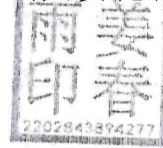 姜春
雨印
2202843894277